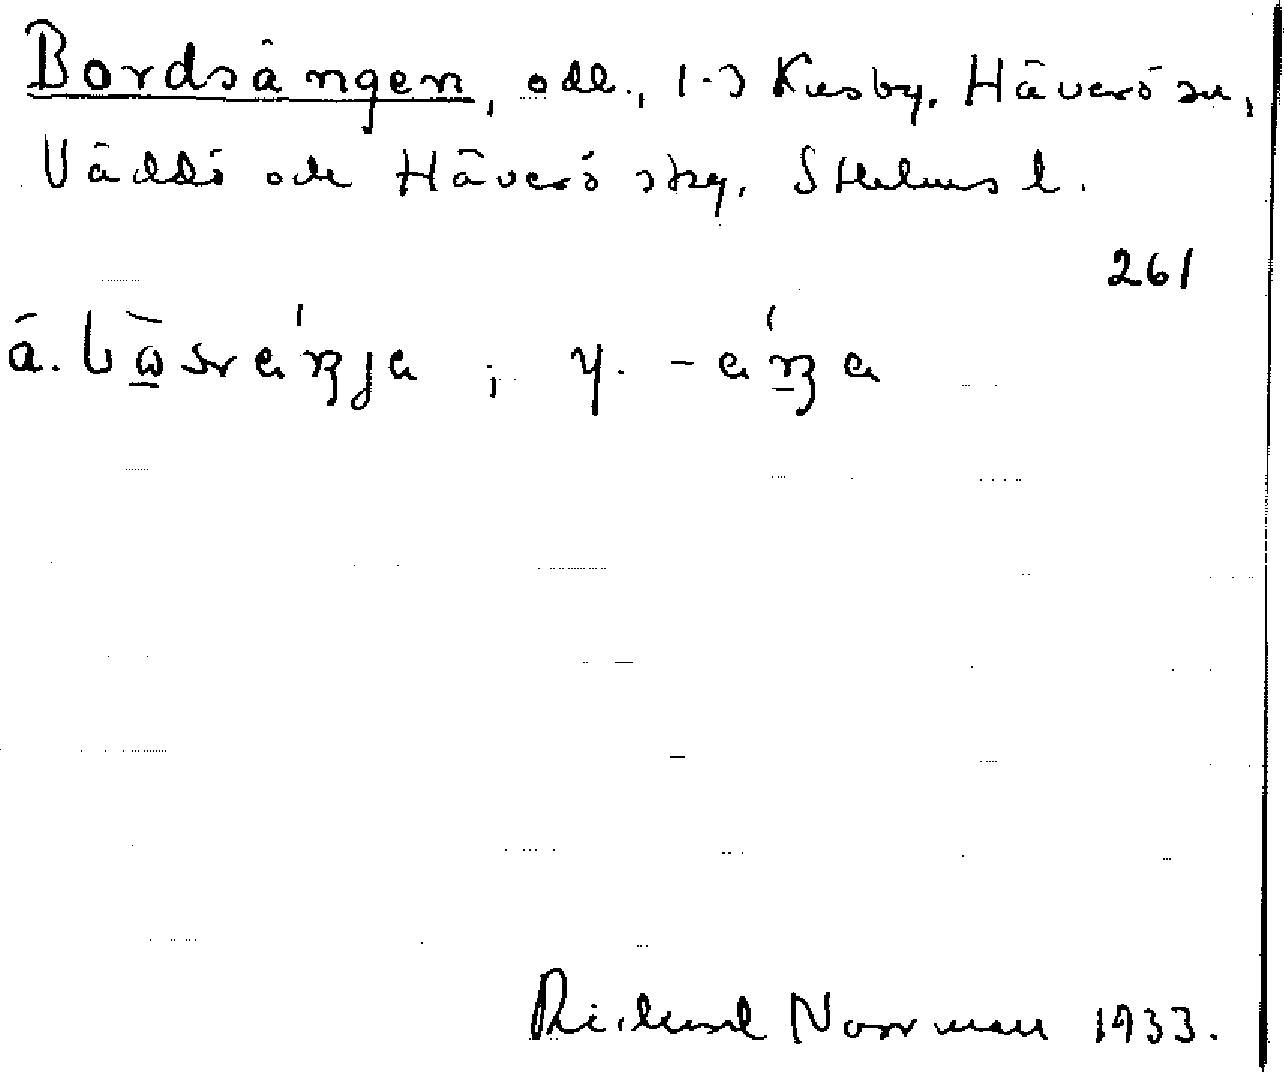 Bordsängen, odl., 1-3 Kusby, Häverö sn,
Väddö och Häverö skg, Sthlms l.
261
ä.
; y.
Richard Norrman 1933.